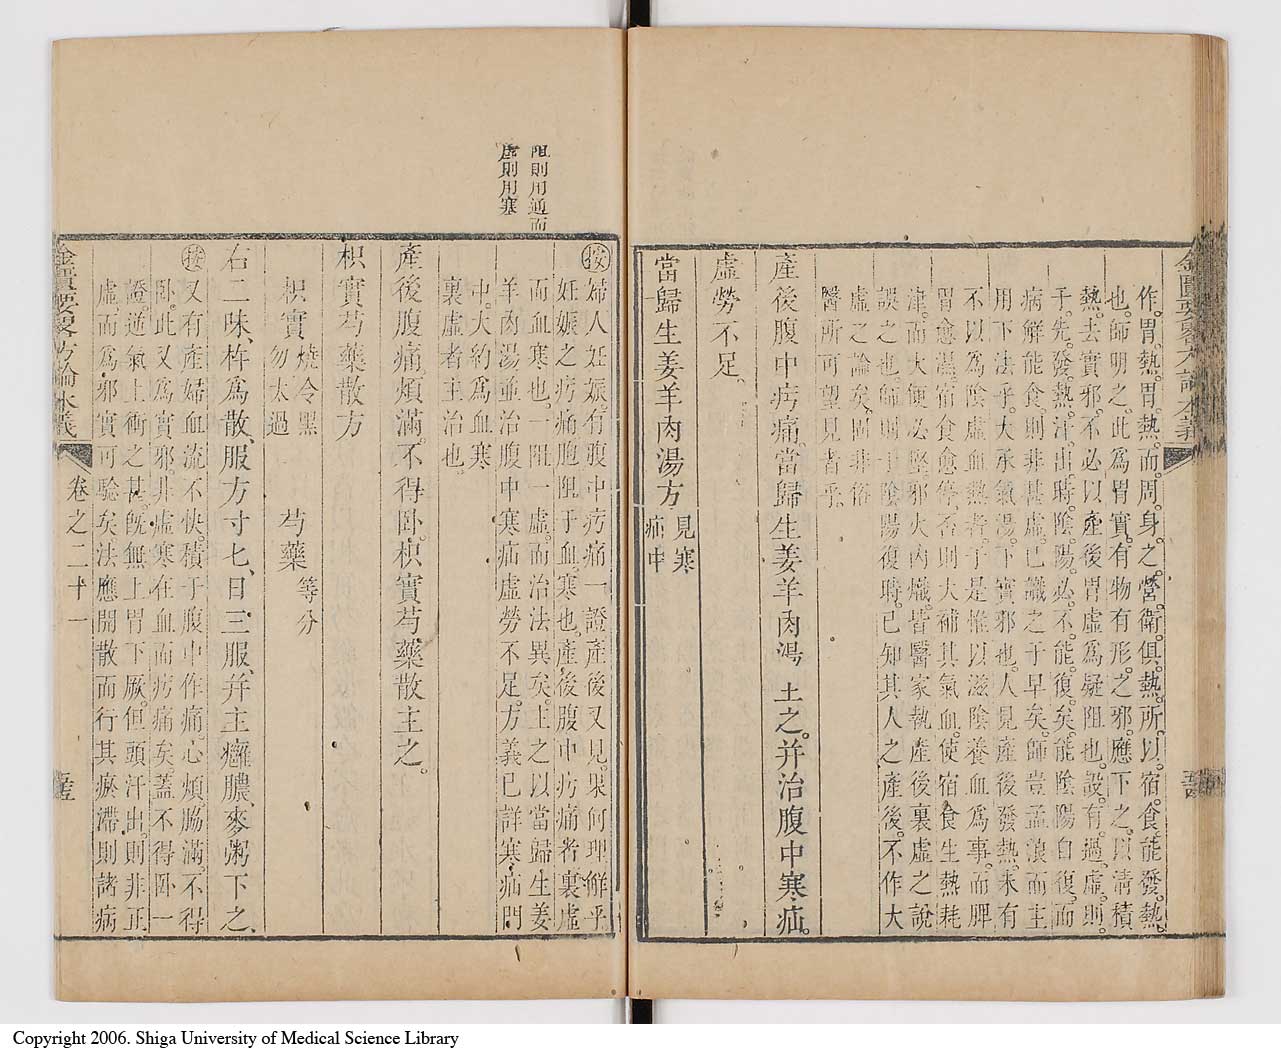 金匱要畧方論本義
作胃熱。胃熱。而周身之營衛。俱熱。所以宿食能發熱
也。師明之。此爲胃實。有物有形。之邪。應下之。以清積
熱。去實邪。不必以產後胃虛爲疑阻也。設有過虛。則
于先發熱。汗出時。陰陽。必不能復矣。能陰陽自復。而
病解能食。則非甚虛。已識之于早矣。師豈孟浪而主
用下法乎。大承氣湯。下實邪也。人見產後發熱。未有
不以爲陰虛血熱者。于是惟以滋陰養血爲事。而脾
胃愈濕。宿食愈停。否則大補其氣血。使宿食生熱耗
津。而大便必堅。邪火內熾。皆醫家執產後裏虛之說
誤之也。師則于陰陽復時。已知其人之產後。不作大
虛之論矣。固非俗
醫所可望見者乎。
產後腹中㽲痛。當歸生姜羊肉湯主之。并治腹中寒疝。
虛勞不足。
當歸生姜羊肉湯方
見寒
疝中
阻則用通而
虛則用寒
按婦人妊娠。有腹中㽲痛一證。產後又見。果何理解乎
妊娠之㽲痛。胞阻于血寒也。產後腹中㽲痛者。裏虛
而血寒也。一阻一虛。而治法異矣。主之以當歸生姜
羊肉湯。並治腹中寒疝虛勞不足。方義已詳寒疝門
中。大約爲血寒
裏虛者主治也。
產後腹痛。煩滿。不得臥。枳實芍藥散主之。
枳實芍藥散方
枳實 燒令黑 勿太過 芍藥 等分
右二味、杵爲散、服方寸匕、日三服、并主癰膿、麥粥下之、
按又有產婦血流不快。積于腹中作痛。心煩脇滿。不得
臥。此又爲實邪。非虛寒在血而㽲痛矣。蓋不得臥一
證。逆氣上衝之甚。旣無上冒下厥。但頭汗出。則非正
虛而爲邪實可驗矣。法應開散而行其瘀滯。則諸病
金匱要畧方論本義
卷之二十一